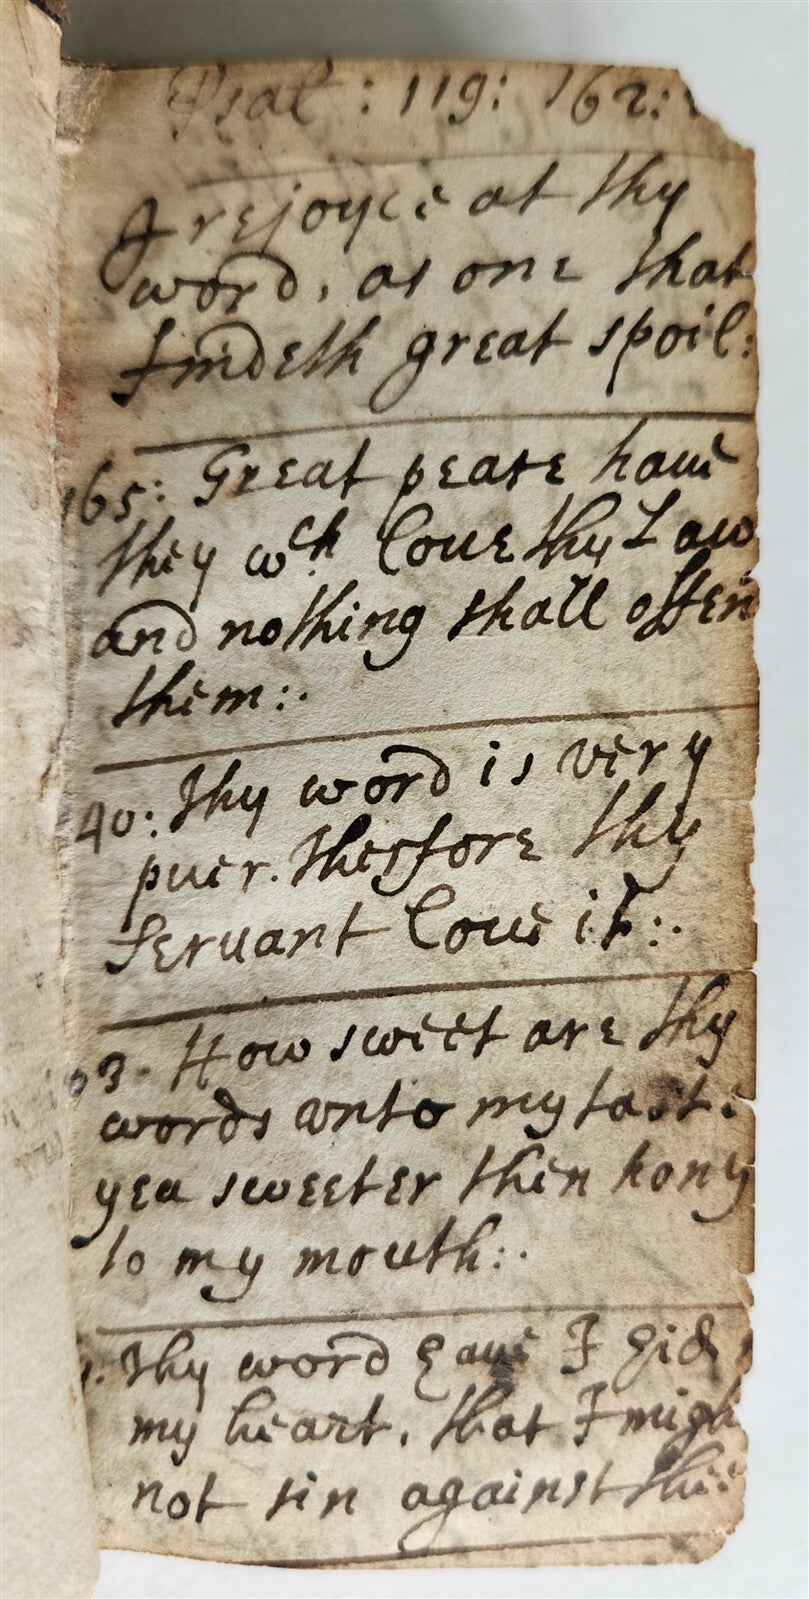 Psal : 119: 162:
I rejoyce at thy
word, as one that
findeth great spoil:
165: Great pease haue
they wch loue thy Law
and nothing shall offen
them:.
40: Thy word is very
puer. therfore thy
seruant loue it:.
03. How sweet are thy
words vnto my tast:
yea sweeter then hony
to my mouth:.
Thy word haue I hid
my heart, that I migh
not sin against thee: